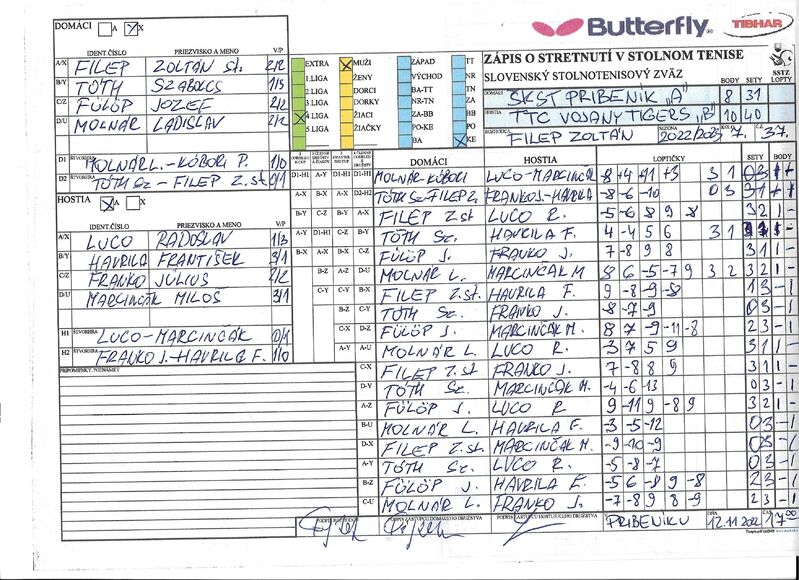 DOMÁCI A X
Butterfly TIBHAR
IDENT.ČÍSLO PRIEZVISKO A MENO V/P
A/X FILEP ZOLTÁN st. 2/2
B/Y TÓTH SZABOLCS 1/3
C/Z FÜLÖP JOZEF 2/2
D/U MOLNÁR LADISLAV 2/2
D1 ŠTVORHRA MOLNÁR L.-KÓBORI P. 1/0
D2 ŠTVORHRA TÓTH Sz - FILEP Z.st 0/1
HOSTIA A X
IDENT.ČÍSLO PRIEZVISKO A MENO V/P
A/X LUCO RADOSLAV 1/3
B/Y HAVRILA FRANTIŠEK 3/1
C/Z FRANKO JÚLIUS 2/2
D/U MARCINČÁK MILOŠ 3/1
H1 ŠTVORHRA LUCO-MARCINČÁK 0/1
H2 ŠTVORHRA FRANKO J.-HAVRILA F. 1/0
PRIPOMIENKY, POZNÁMKY
EXTRA MUŽI ZÁPAD TT
1.LIGA ŽENY VÝCHOD NR
2.LIGA DORCI BA-TT TN
3.LIGA DORKY NR-TN ZA
4.LIGA ŽIACI ZA-BB BB
5.LIGA ŽIAČKY PO-KE PO
BA KE
ZÁPIS O STRETNUTÍ V STOLNOM TENISE
SLOVENSKÝ STOLNOTENISOVÝ ZVÄZ
SSTZ
BODY SETY LOPTY
DOMÁCI ŠKST PRIBENÍK „A" 8 31
HOSTIA TTC VOJANY TIGERS „B" 10 40
ROZHODCA FILEP ZOLTÁN SEZÓNA 2022/2023 7. 37.
DOMÁCI HOSTIA LOPTIČKY SETY BODY
D1-H1 A-Y D1-H1 D1-H1 MOLNÁR-KÓBORI LUCO-MARCINČÁK
A-X B-X A-X D2-H2 TÓTH Sz-FILEP Z. FRANKO J.-HAVRILA -8 -6 -10
B-Y C-Z B-Y A-X FILEP Z.st LUCO R. -5 -6 8 9 8 3 2 1 -
A-Y D1-H1 C-Z B-Y TÓTH Sz. HAVRILA F. 4 -4 5 6 3 1
B-X A-X B-X C-Z FÜLÖP J. FRANKO J. 7 -8 9 8 3 1 1 -
B-Z A-Z D-U MOLNÁR L. MARCINČÁK M 8 6 -5 -7 9 3 2 3 2 1 -
C-Y B-X FILEP Z.st. HAVRILA F. 9 -8 -9 -8 1 3 - 1
B-Z C-Y TÓTH Sz. FRANKO J. -8 -7 -9 0 3 - 1
C-X D-Z FÜLÖP J. MARCINČÁK M. 8 7 -9 -11 -8 2 3 - 1
A-Y A-U MOLNÁR L. LUCO R. 3 7 5 9 3 1 1 -
C-X FILEP Z.st FRANKO J. 7 -8 8 9 3 1 1 -
D-Y TÓTH Sz. MARCINČÁK M. -4 -6 -13 0 3 - 1
A-Z FÜLÖP J. LUCO R 9 -11 9 -8 9 3 2 1 -
B-U MOLNÁR L. HAVRILA F. -3 -5 -12 0 3 - 1
D-X FILEP Z.st. MARCINČÁK M. -9 -10 -9 0 3 - 1
A-Y TÓTH Sz. LUCO R. -5 -8 -7 0 3 - 1
B-Z FÜLÖP J. HAVRILA F. -5 6 -8 9 -8 2 3 - 1
C-U MOLNÁR L. FRANKO J. -7 -8 9 8 -9 2 3 - 1
PODPIS ZÁSTUPCU DOMÁCEHO DRUŽSTVA PODPIS ZÁSTUPCU HOSŤUJÚCEHO DRUŽSTVA V PRIBENÍKU DŇA 12.11.2022 ČAS 17:00